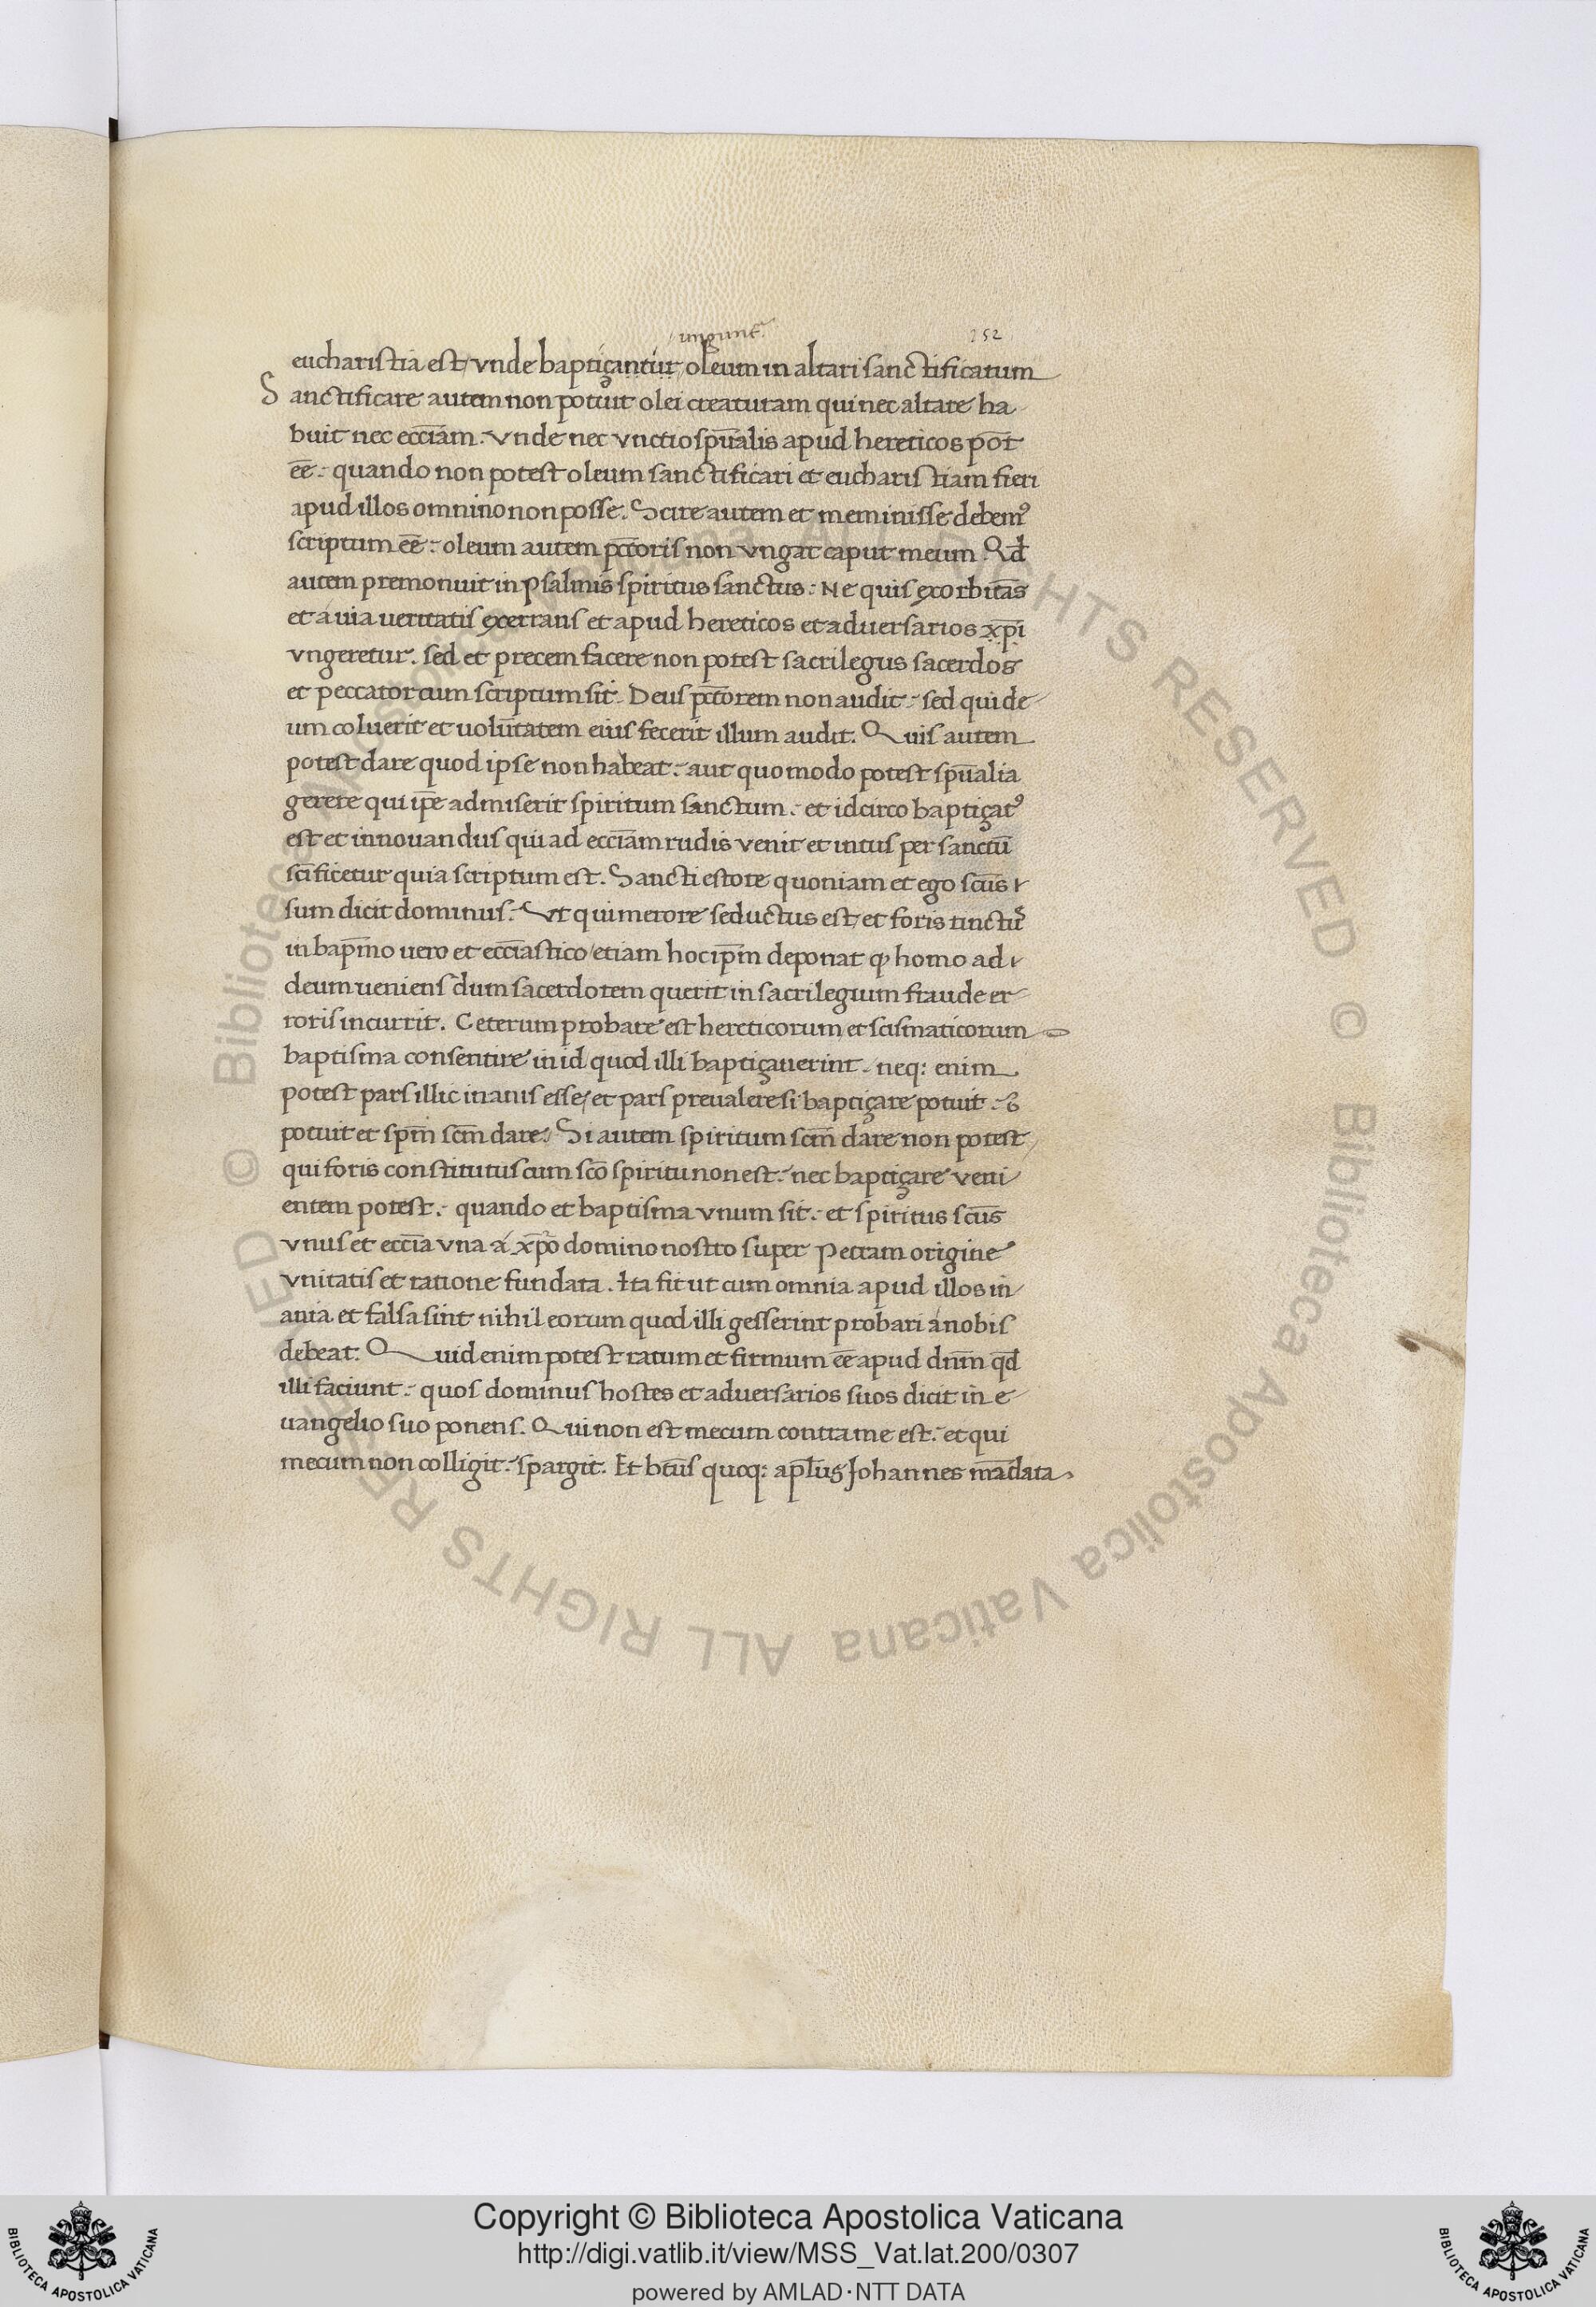 ungunt̄
152
eucharistia est, vnde baptiçantur oleum in altari sanctificatum
Sanctificare autem non potuit olei creaturam qui nec altare ha
buit nec eccl̄iam. vnde nec vnctio sp̄ualis apud hereticos pōt
eē: quando non potest oleum sanctificari et eucharistiam fieri
apud illos omnino non posse. Scire autem et meminisse debemꝰ
scriptum eē: oleum autem pc̄toris non vngat caput meum Qd̄
autem premonuit in psalmis spiritus sanctus: Ne quis exorbitās
et á uia ueritatis exerrans et apud hereticos et aduersarios xp̄i
vngeretur. sed et precem facere non potest sacrilegus sacerdos
et peccator cum scriptum sit. Deus pc̄torem non audit: sed qui de
um coluerit et uolūtatem eius fecerit illum audit. Quis autem
potest dare quod ipse non habeat: aut quomodo potest sp̄ualia
gerere qui ip̄e admiserit spiritum sanctum: et idcirco baptiçatꝰ
est et innouandus qui ad ecc̄iam rudis venit et intus per sanctū
sc̄ificetur quia scriptum est. Sancti estote quoniam et ego sc̄us
sum dicit dominus: Vt qui merore seductus est, et foris tinctꝰ
in bap̄mo uero et ecc̄iastico etiam hoc ip̄m deponat ꝙ homo ad
deum ueniens dum sacerdotem querit in sacrilegium fraude er
roris incurrit. Ceterum probare est hereticorum et scismaticorum
baptisma consentire in id quod illi baptiçauerint. neq: enim
potest pars illic inanis esse, et pars preualere si baptiçare potuit:
potuit et sp̄m sc̄m dare. Si autem spiritum sc̄m dare non potest,
qui foris constitutus cum sc̄o spiritu non est: nec baptiçare veni
entem potest: quando et baptisma vnum sit: et spiritus sc̄us
vnus et ecc̄ia vna á xp̄o domino nostro super Petram origine
vnitatis et ratione fundata. Ita fit ut cum omnia apud illos in
ania et falsa sint nihil eorum quod illi gesserint probari á nobis
debeat: Quid enim potest ratum et firmum eē apud dn̄m qd̄
illi faciunt: quos dominus hostes et aduersarios suos dicit in e
uangelio suo ponens. Qui non est mecum contra me est: et qui
mecum non colligit: spargit. Et bt̄us quoq: apl̄us Johannes mādata
© Biblioteca Apostolica Vaticana ALL RIGHTS RESERVED © Biblioteca Apostolica Vaticana ALL RIGHTS RESERVED
Copyright © Biblioteca Apostolica Vaticana
http://digi.vatlib.it/view/MSS_Vat.lat.200/0307
powered by AMLAD·NTT DATA
BIBLIOTECA APOSTOLICA VATICANA
BIBLIOTECA APOSTOLICA VATICANA